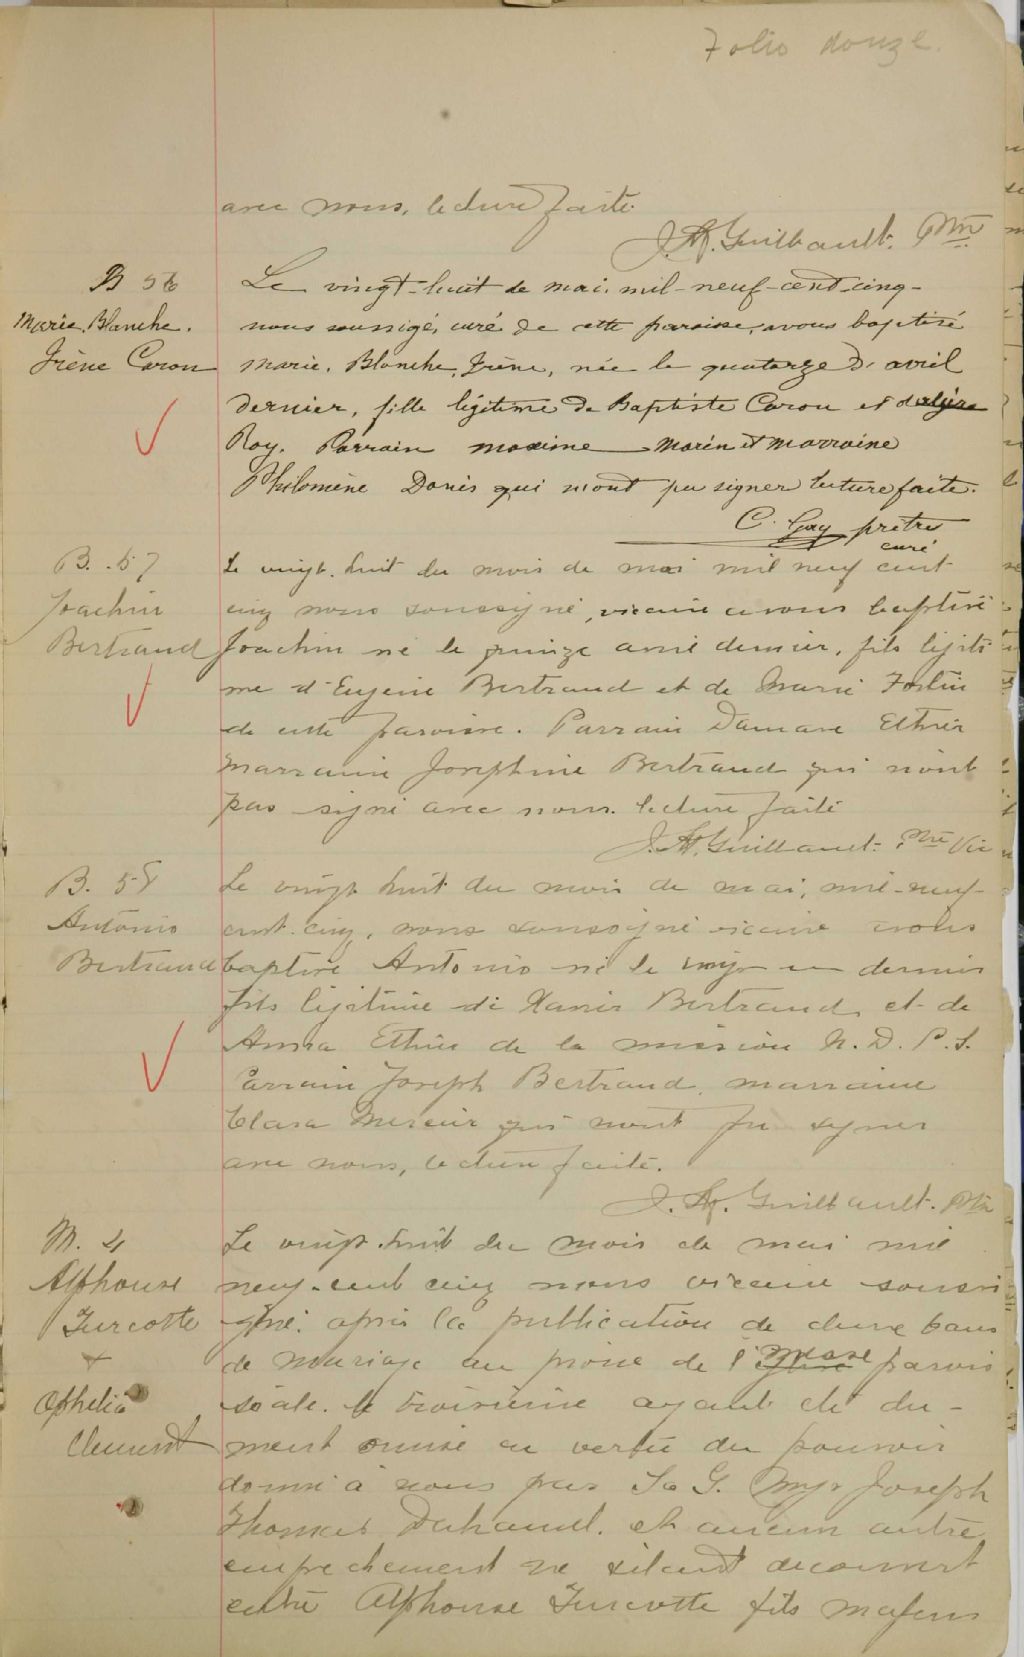 Folio douze.
avec nous, lecture faite.
J. A. Guilbault. Ptre
B 56
Marie, Blanche.
Irène Caron
Le vingt-huit de mai, mil-neuf-cent-cinq-
nous sousigé, curé de cette paroisse, avons baptisé
Marie, Blanche, Irène, née le quatorze d'avril
dernier, fille légitime de Baptiste Caron et d'
Roy. Parrain Maxime Morin et Marraine
Philomène qui n'ont pu signer lecture faite.
C. Gay prêtre
curé
B. 57
Joachim
Bertrand
Le vingt-huit du mois de mai mil neuf cent
cinq nous soussigné, vicaire avons baptisé
Joachim né le quinze avril dernier, fils légiti
me d'Eugène Bertrand et de Marie Fortin
de cette paroisse. Parrain Damase Ethier
Marraine Josephine Bertrand qui n'ont
pas signé avec nous. lecture faite
J. A. Guilbault. Ptre Vic
B. 58
Antonio
Bertrand
Le vingt huit du mois de mai, mil-neuf-
cent-cinq, nous soussigné vicaire avons
baptisé Antonio né le vingt un dernier
fils légitime de Xavier Bertrand, et de
Anna Ethier de la mission N. D. P. S.
Parrain Joseph Bertrand, marraine
Clara Mercier qui n'ont pu signer
avec nous, lecture faite.
J. A. Guilbault. Ptre
M. 4
Alphonse
Turcotte
+
Ophelia
Clement
Le vingt-huit du mois de mai mil
neuf-cent cinq nous vicaire soussi
gné, après la publication de deux bans
de mariage au prône de l' messe parois
siale. le troisième ayant été du-
ment omise en vertu du pouvoir
donné à nous par Sa G. Mgr Joseph
Thomas Duhamel. et aucun autre
empechement ne s'étant decouvert
entre Alphonse Turcotte fils majeur